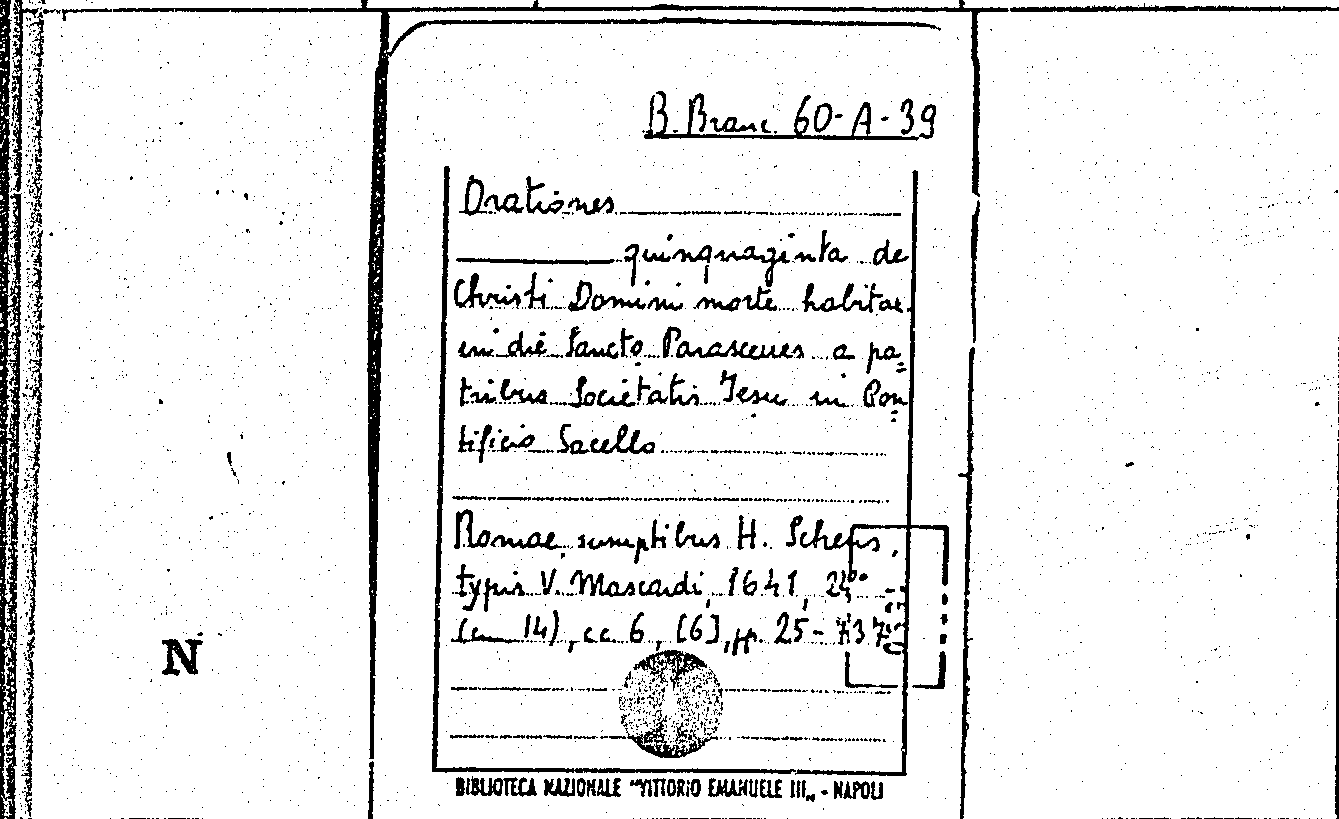 B. Branc. 60-A-39
Orationes
quinquaginta de
Christi Domini morte habitae
in die Sancto Parasceues a pa=
tribus Societatis Iesu in Pon=
tificio Sacello
Romae, sumptibus H. Scheus,
typis V. Mascardi, 1641, 24°
(cm 14), cc 6, [6], pp. 25-737
N
BIBLIOTECA NAZIONALE "VITTORIO EMANUELE III„ - NAPOLI